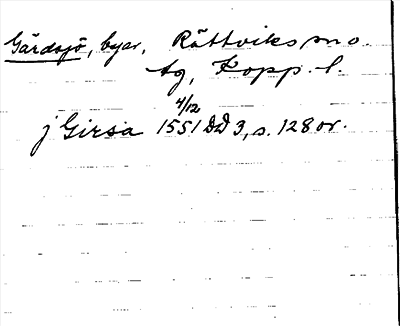 Gärdsjö, byar, Rättviks sn o.
tg, Kopp. l.
4/12
j Girsa 1551 DD 3, s. 128 or.